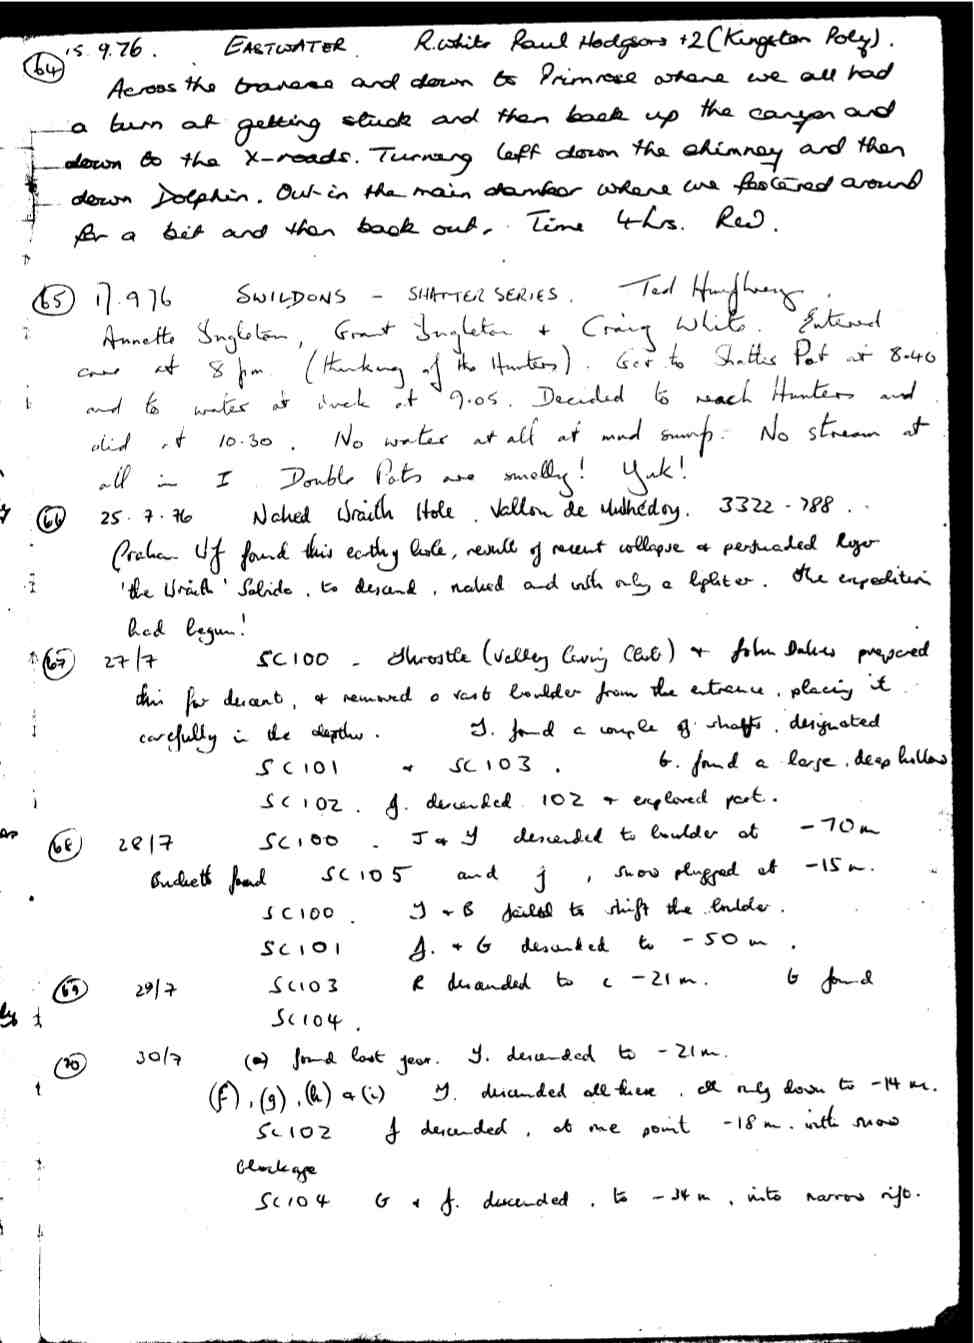 64 15.9.76. EASTWATER R.White Paul Hodgson +2 (Kingston Poly).
Across the traverse and down to Primrose where we all had
a turn at getting stuck and then back up the canyon and
down to the X-roads. Turning left down the chimney and then
down Dolphin. Out in the main chamber where we festered around
for a bit and then back out. Time 4hrs. Rew.
65 17.9.76 SWILDONS - SHATTER SERIES. Ted Humphreys,
Annette Ingleton, Grant Ingleton + Craig White. Entered
cave at 8 pm. (thinking of the Hunters). Got to Shatter Pot at 8.40
and to water at duck at 9.05. Decided to reach Hunters and
did at 10.30. No water at all at mud sump. No stream at
all in I Double Pots are smelly! Yuk!
66 25.7.76 Naked Wraith Hole. Vallon de 3322-788..
found this earthy hole, result of recent collapse & persuaded Roger
'the Wraith' to descend, naked and with only a lighter. The expedition
had begun!
67 27/7 SC100 - Throstle (Valley Caving Club) + John prepared
this for descent, & removed a vast boulder from the entrance, placing it
carefully in the depths. Y. found a couple of shafts, designated
SC101 & SC103. G. found a large, deep hollow
SC102. J. descended 102 & explored part.
68 28/7 SC100. J & Y descended to boulder at -70m
Buckett found SC105 and j, snow plugged at -15m.
SC100. Y & B failed to shift the boulder.
SC101 J. & G descended to -50m.
69 29/7 SC103 R descended to c -21m. G found
SC104.
70 30/7 (e) found last year. Y. descended to -21m.
(f), (g), (h) & (i) Y. descended all these, all only down to -14m.
SC102 J descended, at one point -18m. with snow
blockage
SC104 G & J. descended, to -34m, into narrow rift.